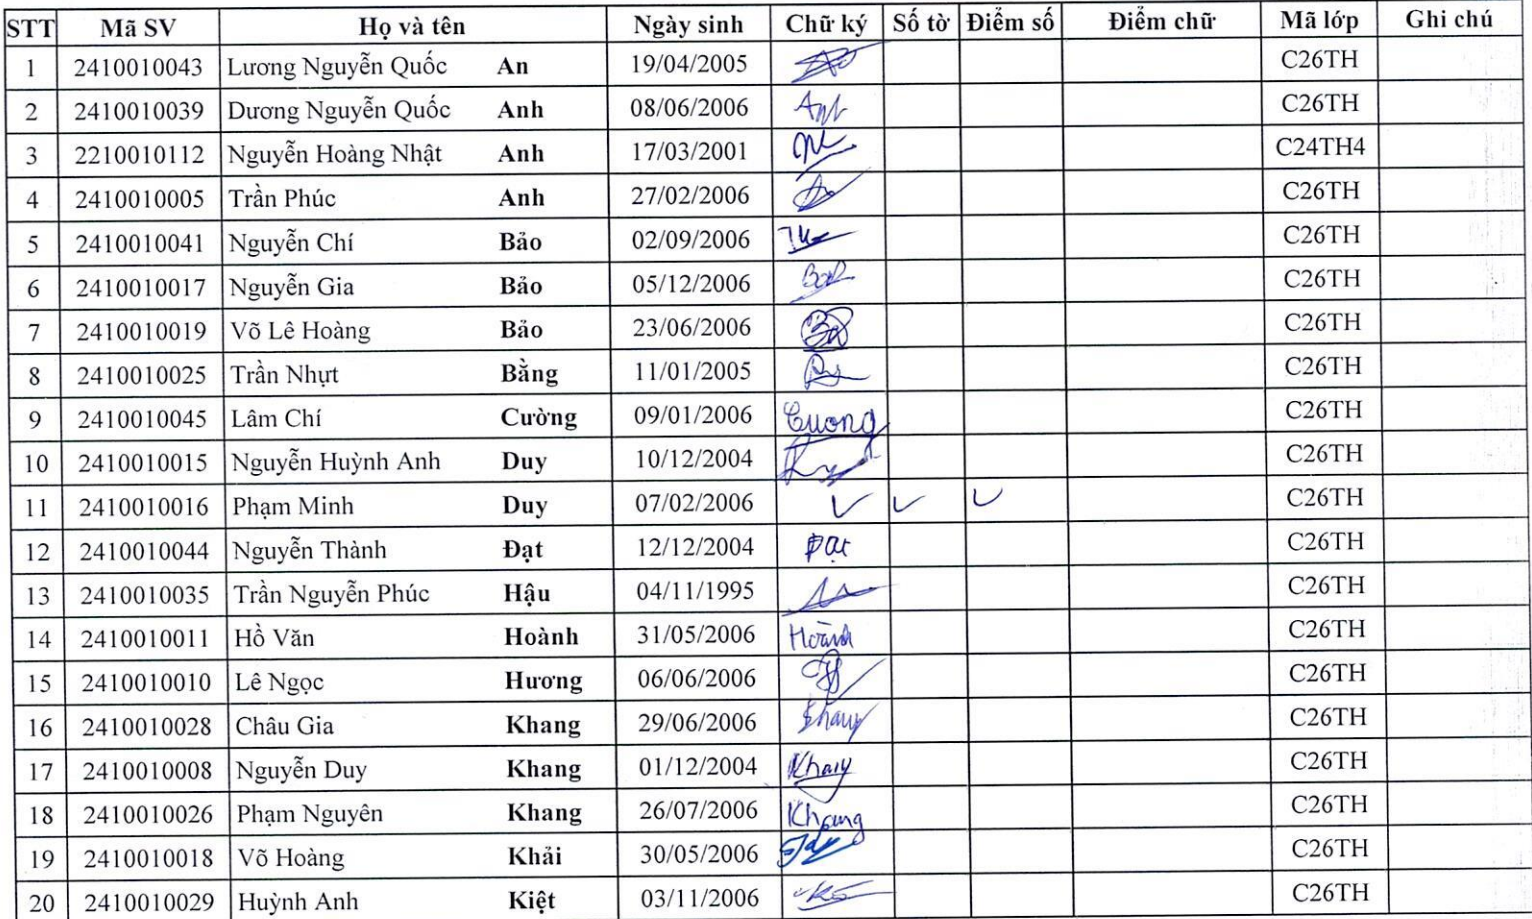 STT Mã SV Họ và tên Ngày sinh Chữ ký Số tờ Điểm số Điểm chữ Mã lớp Ghi chú
1 2410010043 Lương Nguyễn Quốc An 19/04/2005 C26TH
2 2410010039 Dương Nguyễn Quốc Anh 08/06/2006 Anh C26TH
3 2210010112 Nguyễn Hoàng Nhật Anh 17/03/2001 C24TH4
4 2410010005 Trần Phúc Anh 27/02/2006 C26TH
5 2410010041 Nguyễn Chí Bảo 02/09/2006 C26TH
6 2410010017 Nguyễn Gia Bảo 05/12/2006 C26TH
7 2410010019 Võ Lê Hoàng Bảo 23/06/2006 C26TH
8 2410010025 Trần Nhựt Bằng 11/01/2005 C26TH
9 2410010045 Lâm Chí Cường 09/01/2006 Cuong C26TH
10 2410010015 Nguyễn Huỳnh Anh Duy 10/12/2004 C26TH
11 2410010016 Phạm Minh Duy 07/02/2006 ✓ ✓ ✓ C26TH
12 2410010044 Nguyễn Thành Đạt 12/12/2004 Đạt C26TH
13 2410010035 Trần Nguyễn Phúc Hậu 04/11/1995 C26TH
14 2410010011 Hồ Văn Hoành 31/05/2006 Hoành C26TH
15 2410010010 Lê Ngọc Hương 06/06/2006 C26TH
16 2410010028 Châu Gia Khang 29/06/2006 Khang C26TH
17 2410010008 Nguyễn Duy Khang 01/12/2004 Khang C26TH
18 2410010026 Phạm Nguyên Khang 26/07/2006 Khang C26TH
19 2410010018 Võ Hoàng Khải 30/05/2006 C26TH
20 2410010029 Huỳnh Anh Kiệt 03/11/2006 C26TH